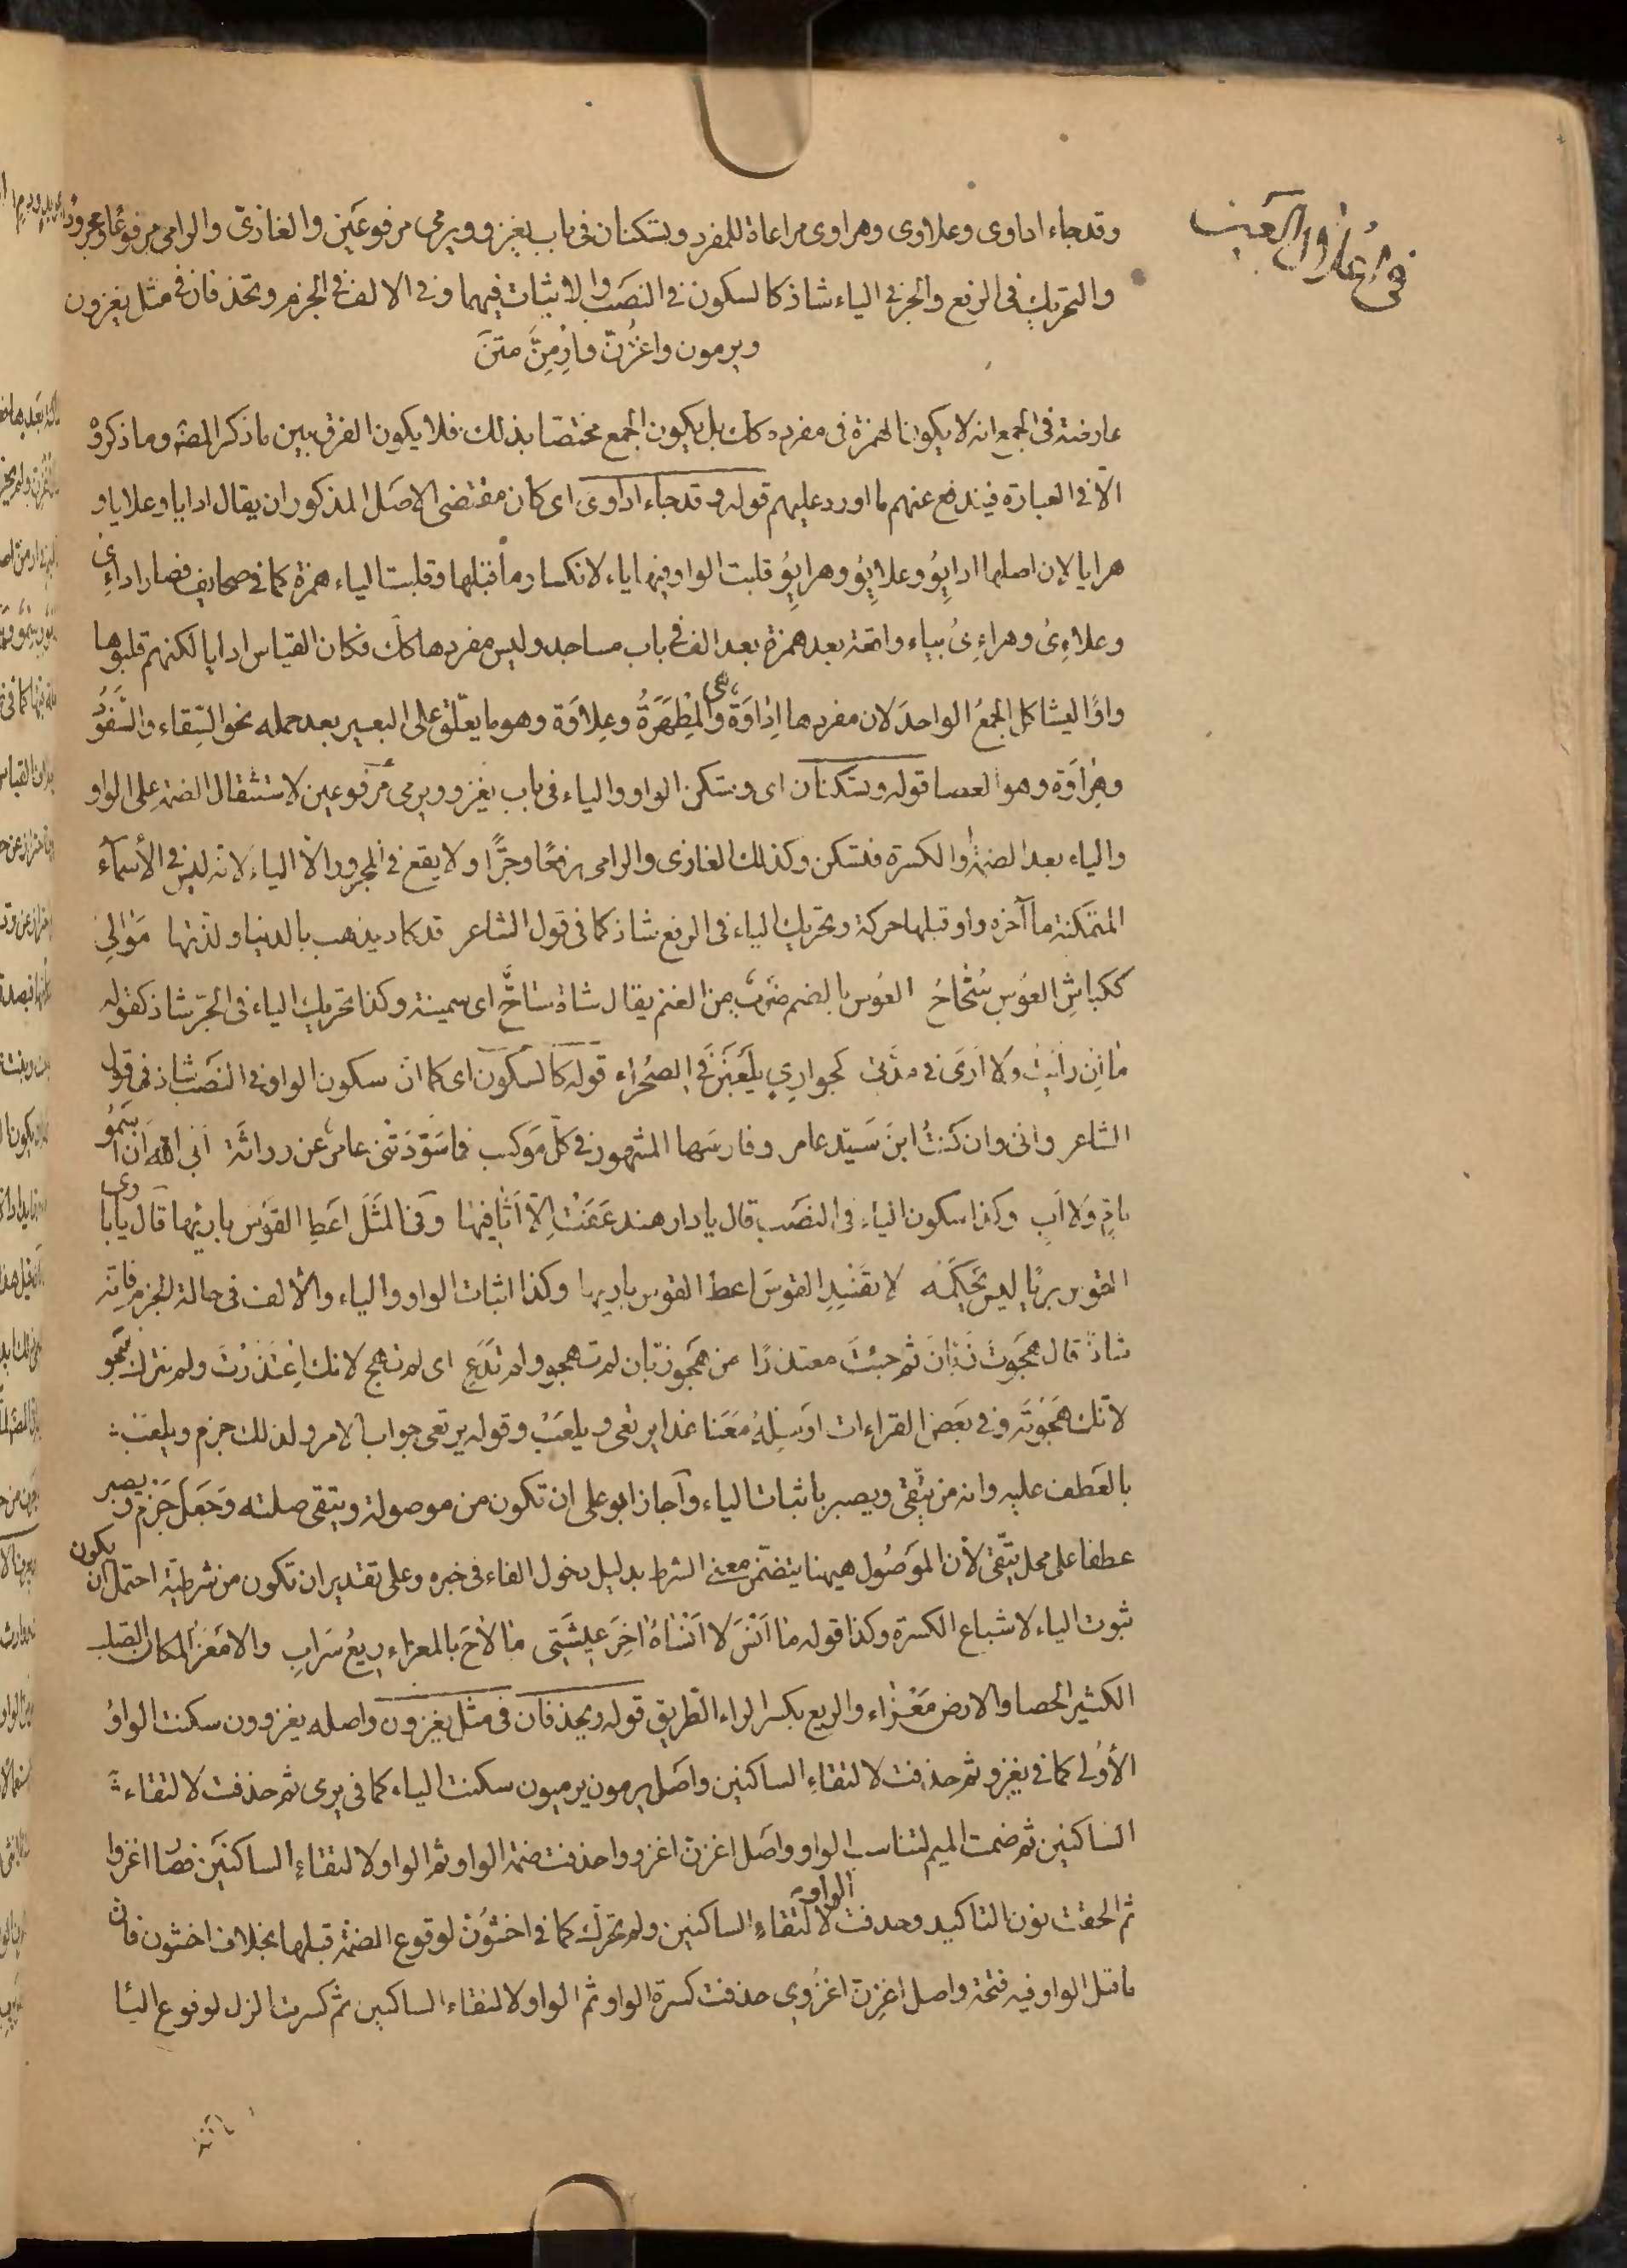 في اعلال العين
وقد جاء اداوى وعلاوى وهراوى مراعاة للمفرد وتسكنان فى باب يغزو ويرمى مرفوعَين والغازىّ والرامى مرفوعًا ومجرورًا
والتحريك فى الرفع والجر فى الياء شاذ كالسكون فى النصَب والاثبات فيهما وفى الالف فى الجزم وتحذفان فى مثل يغزون
ويرمون واغزُنّ وارْمِنَّ متنَ
عارضة فى الجمع انه لا يكون الهمزة فى مفرده كك بل يكون الجمع مختصا بذلك فلا يكون الفرق بين ما ذكر المصّ وما ذكروْ
الاّ فى العبارة فيندفع عنهم ما اورد عليهم قوله وقد جاء اداوى اى كان مقتضى الاصَل المذكور ان يقال ادايا وعلايا و
هرايا لان اصلها ادايِوُ وعلايِوُ وهرايِوُ قلبت الواو فيها ياء لانكسار ما قبلها وقلبت الياء همزة كما فى صحايف فصار اداءِىُ
وعلاءِىُ وهراءِىُ بياء واقعة بعد همزة بعد الف فى باب مساجد وليس مفردها كك فكان القياس ادايا لكنهم قلبوها
واوًا ليشاكل الجمعُ الواحدَ لان مفردها اِدَاوَةٌ وهى المِطْهَرَةُ وعِلاوَة وهو ما يعَلّق على البعير بعد حمله نحو السِّقاء والسَّفوّد
وهِرَاوَة وهو العصا قوله وتسكنان اى وتسكن الواو والياء فى باب يغزو ويرمى مرفوعين لاستثقال الضمة على الواو
والياء بعد الضمة والكسرة فتسكن وكذلك الغازى والرامى رفعًا وجرًّا ولا يقع فى المجرور الاّ الياء لانه ليس فى الأسماء
المتمكنة ما آخره واو قبلها حركة وتحريك الياء فى الرفع شاذ كما فى قول الشاعر قد كاد يذهب بالدنيا ولذتها مَوَالِىٌ
ككباشِ العوُسِ سُحّاحُ العوُس بالضم ضرَبٌ من الغنم يقال شاة ساحٌّ اى سمينة وكذا تحريك الياء فى الجّر شاذ كقوله
ما اِن رَأيتُ وَلا اَرَى فى مدّتى كجوارِيٍ يَلعَبَنَ فى الصحَراء قوله كالسكون اى كما انّ سكون الواو فى النصَب شاذ فى قول
الشاعر وانى وان كنتُ ابنَ سَيّد عامر وفارسَها المشهور فى كلّ مَوكب فما سَوّدَتْنى عامرٌ عن وراثَة اَبَى اللهُ اَن اسمُوُ
بامٍّ وَلا اَبِ وكذا سكون الياء فى النصَب قال يا دار هند عَفَتْ اِلاّ اَثافِيْهَا وفى المثَل اَعَطِ القوَس باريْها قال يا بارِى
القوس بريًا ليس تُحْكِمُه لا تفسِدِ القوسَ اعط القوس باريها وكذا اثبات الواو والياء والالف فى حالة الجزم فانّه
شاذّ قال هجَوتَ زَبّانَ ثم جئتَ معتذرًا من هَجوِ زبّان لم تهجو ولم تَدَعِ اى لم تهج لانك اِعْتذَرْتَ ولم تترك الهجو
لانّك هَجَوْتَه وفى بَعض القراءات ارْسِلهُ مَعَنا غدا يرتعى ويلعَبْ وقوله يرتعى جواب الامر ولذلك جزم ويلعَبْ
بالعَطف عليه وانه من يتّقى ويصبر باثبات الياء وآجاز ابو على ان تكون من موصولة ويتقى صلته وَجَعَل جَزْم ويصبر
عطفا على محل يتّقى لأن الموَصُول هيهنا يتضمّن معنى الشرط بدليل دخول الفاء فى خبره وعلى تقدير ان تكون من شرطيّة احتمل ان يكون
ثبوت الياء لاشباع الكسرة وكذا قوله ما اَنْسَ لا اَنْسَاهُ اخِرَ عيِشَتى ما لاَحَ بالمعزاء رِيعُ سَرابِ والامَعَز المكان الصَلب
الكثير الحصا والارض مَعْزاء والريع بكسر الراء الطريق قوله ويحذفان فى مثل يغزون واصله يغزوون سكنت الواوُ
الأوُلى كما فى يغزو ثم حذفت لالتقاءِ الساكنين واصَل يرمون يرميون سكنت الياء كما فى يرمى ثم حذفت لالتقاء
الساكنين ثم ضمت الميم لتناسب الواو واصَل اغزنّ اغزووا حذفت ضمة الواو ثم الواو لالتقاءِ الساكنَين فصار اغزوا
ثم الحقت نون التاكيد وحذفت الواو لالتقاءِ الساكنين ولم تحرّك كما فى اخشَوُنّ لوقوع الضمة قبلها بخلاف اخشون فان
ما قبل الواو فيه فتحة واصل اغزِنّ اغزُوِى حذفت كسرة الواو ثم الواو لالتقاء الساكنين ثم كسرت الزاى لوقوع اليا